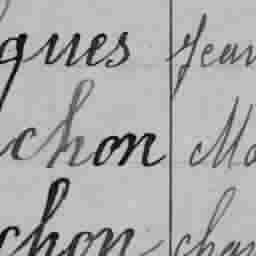 gues Jean
chon Ma
chon char